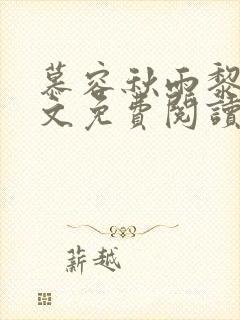 慕容秋雨黎
文免費閱讀
薪越